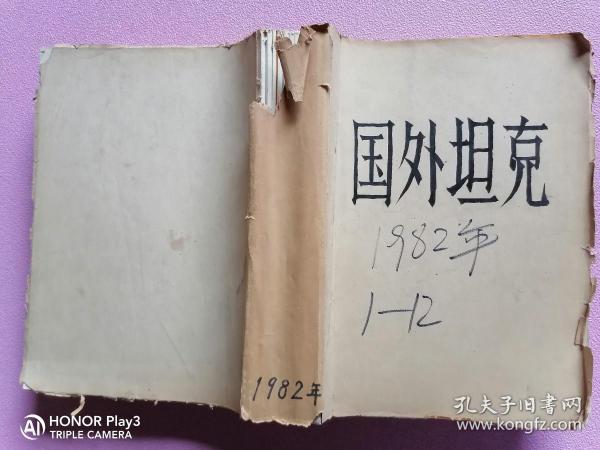 国外坦克
1982年
1—12
1982年
HONOR Play3
TRIPLE CAMERA
孔夫子旧书网
www.kongfz.com